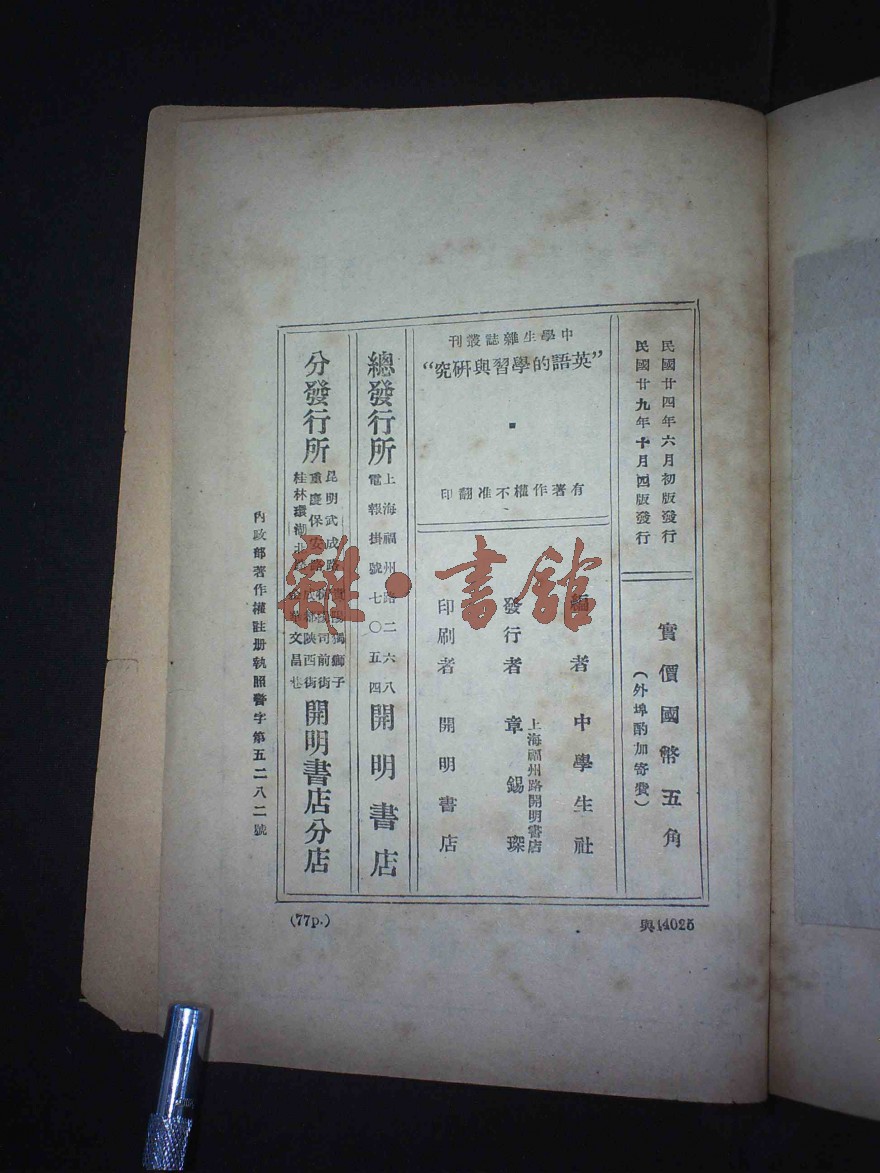 民國廿四年六月初版發行
民國廿九年十月四版發行
實價國幣五角
(外埠酌加寄費)
中學生雜誌叢刊
“英語的學習與研究”
有著作權不准翻印
編者 中學生社
發行者 上海福州路開明書店 章錫琛
印刷者 開明書店
總發行所 上海福州路二六八 電報掛號七〇五四 開明書店
分發行所
昆明武成路 獨獅子
重慶保安路 司前街
成都陝西街
桂林環湖北路 文昌巷
開明書店分店
內政部著作權註册執照警字第五二八二號
(77p.)
與14025
雜·書館